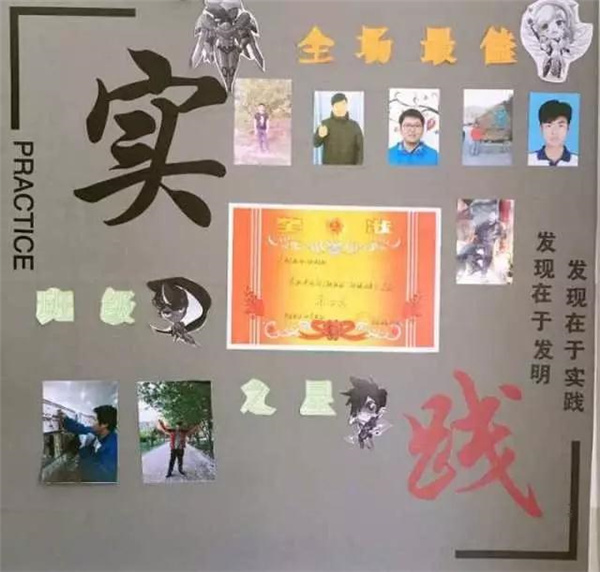 全场最佳
实
PRACTICE
奖 状
发现在于实践
发现在于发明
班级
之星
践